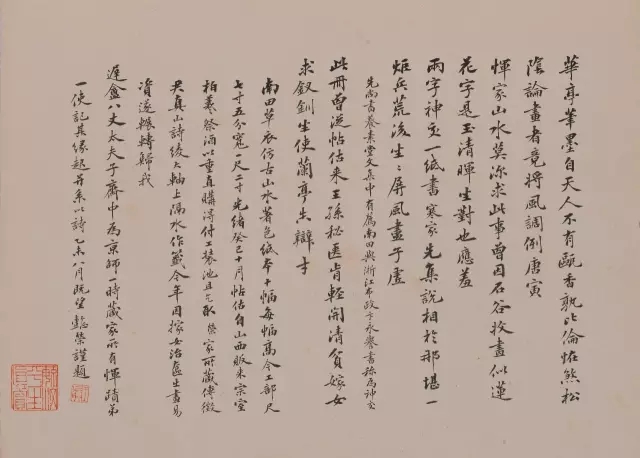 華亭筆墨自天人不有甌香孰比倫恠煞松
陰論畫者竟將風調例唐寅
惲家山水莫添求此事曾因石谷收畫似蓮
花字是玉清暉生對也應羞
兩字神交一紙書寒家先集說相於那堪一
炬兵荒後生生屏風畫子虛
先尚書養素堂文集中有為南田與浙江布政予永譽書稱為神交
此冊曾從帖估來王孫秘匧肯輕開清貧嫁女
求釵釧生使蘭亭出辯才
南田草衣仿古山水著色紙本十幅每幅高今工部尺
七寸五分寬一尺二寸光緒癸巳十月帖估自山西販來宗室
柏羲祭酒以重直購得付工裝池且乞取寒家所藏傅徵
君真山詩綾大軸上隔水作籤今年因嫁女治匳生畫易
資遂輾轉歸我
遲盦八丈太夫子齋中為京師一時藏家所有惲蹟弟
一使記其緣起并系以詩乙未八月既望懿榮謹題